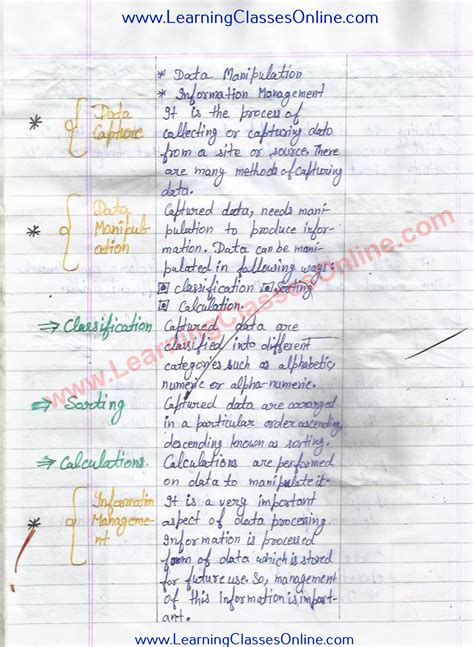 www.LearningClassesOnline.com
* Data Manipulation
* Information Management
* Data Capture
It is the process of
collecting or capturing data
from a site or source. There
are many methods of capturing
data.
* Data Manipulation
Captured data, needs mani
pulation to produce infor-
mation. Data can be mani
pulated in following ways:
classification Sorting
Calculation.
⇒ Classification
Captured data are
classified into different
categories such as alphabetic,
numeric or alpha-numeric.
⇒ Sorting
Captured data are arranged
in a particular order ascending,
descending known as sorting.
⇒ Calculations.
Calculations are performed
on data to manipulate it.
* Informatin
Manageme-
nt
It is a very important
aspect of data processing.
Information is processed
form of data which is stored
for future use. So, management
of this information is import-
ant.
www.LearningClassesOnline.com
www.LearningClassesOnline.com